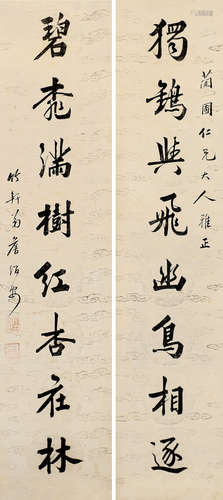 蘭圃仁兄大人雅正
獨鶴與飛幽鳥相逐
碧桃滿樹紅杏在林
竹軒弟詹